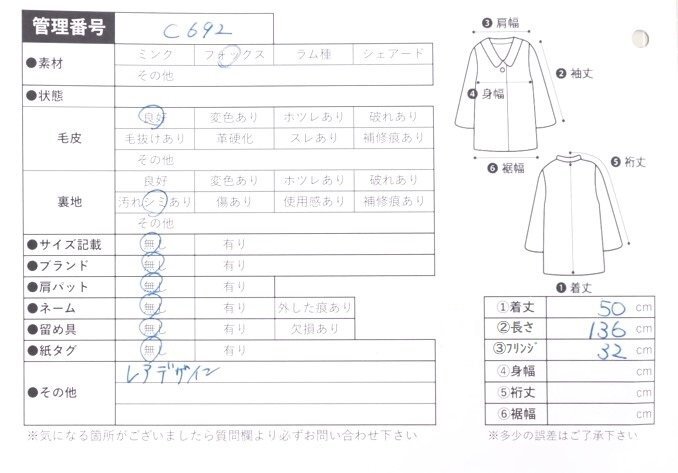 管理番号 C692
●素材 ミンク フォックス ラム種 シェアード
その他
●状態
毛皮 良好 変色あり ホツレあり 破れあり
毛抜けあり 革硬化 スレあり 補修痕あり
その他
裏地 良好 変色あり ホツレあり 破れあり
汚れシミあり 傷あり 使用感あり 補修痕あり
その他
●サイズ記載 無し 有り
●ブランド 無し 有り
●肩パット 無し 有り
●ネーム 無し 有り 外した痕あり
●留め具 無し 有り 欠損あり
●紙タグ 無し 有り
●その他 レアデザイン
※気になる箇所がございましたら質問欄より必ずお問い合わせ下さい
❸肩幅
❷袖丈
❹身幅
❻裾幅
❺裄丈
❶着丈
①着丈 50 cm
②長さ 136 cm
③フリンジ 32 cm
④身幅 cm
⑤裄丈 cm
⑥裾幅 cm
※多少の誤差はご了承下さい